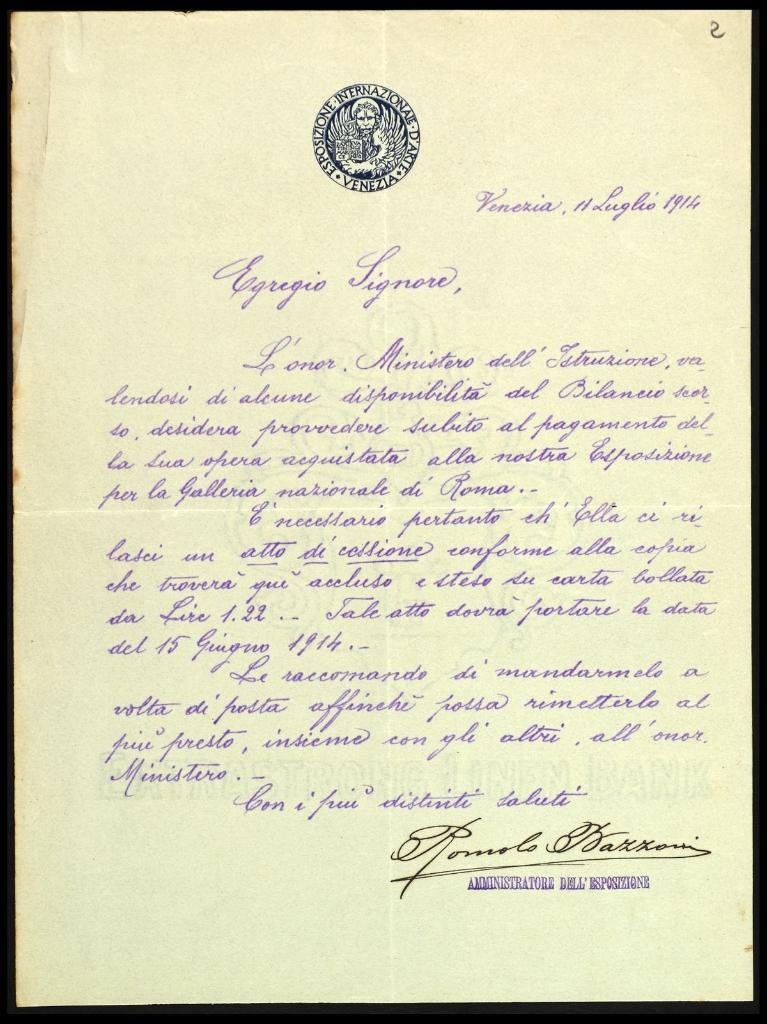 2
ESPOSIZIONE·INTERNAZIONALE·D'ARTE·
·VENEZIA·
Venezia, 11 Luglio 1914
Egregio Signore,
L'onor. Ministero dell'Istruzione, va-
lendosi di alcune disponibilità del Bilancio scor-
so, desidera provvedere subito al pagamento del-
la Sua opera acquistata alla nostra Esposizione
per la Galleria nazionale di Roma.-
E' necessario pertanto ch'Ella ci ri-
lasci un atto di cessione conforme alla copia
che troverà quì accluso e steso su carta bollata
da Lire 1.22.- Tale atto dovrà portare la data
del 15 Giugno 1914.-
Le raccomando di mandarmelo a
volta di posta affinchè possa rimetterlo al
più presto, insieme con gli altri, all'onor.
Ministero.-
Con i più distinti saluti
Romolo Bazzoni
AMMINISTRATORE DELL'ESPOSIZIONE
EXTRA STRONG LINEN BANK